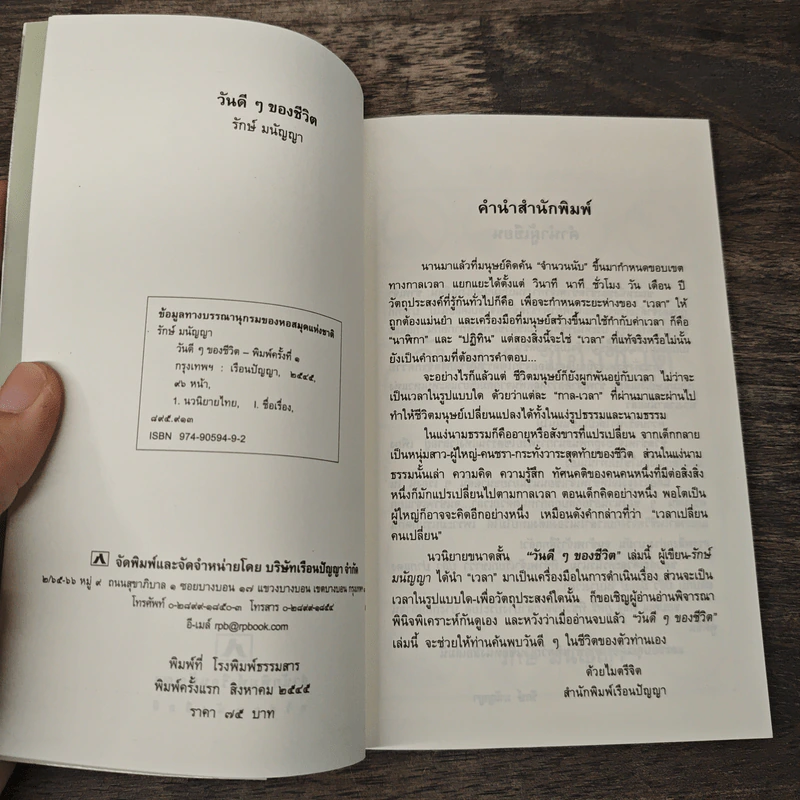 วันดี ๆ ของชีวิต
รักษ์ มนัญญา
ข้อมูลทางบรรณานุกรมของหอสมุดแห่งชาติ
รักษ์ มนัญญา
วันดี ๆ ของชีวิต – พิมพ์ครั้งที่ ๑
กรุงเทพฯ : เรือนปัญญา, ๒๕๔๕,
๙๖ หน้า,
1. นวนิยายไทย, I. ชื่อเรื่อง,
๘๙๕.๙๑๓
ISBN 974-90594-9-2
จัดพิมพ์และจัดจำหน่ายโดย บริษัทเรือนปัญญา จำกัด
๒/๖๕-๖๖ หมู่ ๙ ถนนสุขาภิบาล ๑ ซอยบางบอน ๑๗ แขวงบางบอน เขตบางบอน
โทรศัพท์ ๐-๒๘๙๙-๑๘๕๐-๓ โทรสาร ๐-๒๘๙๙-๑๘๕๔
อี-เมล์ rpb@rpbook.com
พิมพ์ที่ โรงพิมพ์ธรรมสาร
พิมพ์ครั้งแรก สิงหาคม ๒๕๔๕
ราคา ๗๕ บาท
คำนำสำนักพิมพ์
นานมาแล้วที่มนุษย์คิดค้น "จำนวนนับ" ขึ้นมากำหนดขอบเขต
ทางกาลเวลา แยกแยะได้ตั้งแต่ วินาที นาที ชั่วโมง วัน เดือน ปี
วัตถุประสงค์ที่รู้กันทั่วไปก็คือ เพื่อจะกำหนดระยะห่างของ "เวลา" ให้
ถูกต้องแม่นยำ และเครื่องมือที่มนุษย์สร้างขึ้นมาใช้กำกับค่าเวลา ก็คือ
"นาฬิกา" และ "ปฏิทิน" แต่สองสิ่งนี้จะใช่ "เวลา" ที่แท้จริงหรือไม่นั้น
ยังเป็นคำถามที่ต้องการคำตอบ...
จะอย่างไรก็แล้วแต่ ชีวิตมนุษย์ก็ยังผูกพันอยู่กับเวลา ไม่ว่าจะ
เป็นเวลาในรูปแบบใด ด้วยว่าแต่ละ "กาล-เวลา" ที่ผ่านมาและผ่านไป
ทำให้ชีวิตมนุษย์เปลี่ยนแปลงได้ทั้งในแง่รูปธรรมและนามธรรม
ในแง่นามธรรมก็คืออายุหรือสังขารที่แปรเปลี่ยน จากเด็กกลาย
เป็นหนุ่มสาว-ผู้ใหญ่-คนชรา-กระทั่งวาระสุดท้ายของชีวิต ส่วนในแง่นาม
ธรรมนั้นเล่า ความคิด ความรู้สึก ทัศนคติของคนคนหนึ่งที่มีต่อสิ่งสิ่ง
หนึ่งก็มักแปรเปลี่ยนไปตามกาลเวลา ตอนเด็กคิดอย่างหนึ่ง พอโตเป็น
ผู้ใหญ่ก็อาจจะคิดอีกอย่างหนึ่ง เหมือนดังคำกล่าวที่ว่า "เวลาเปลี่ยน
คนเปลี่ยน"
นวนิยายขนาดสั้น "วันดี ๆ ของชีวิต" เล่มนี้ ผู้เขียน-รักษ์
มนัญญา ได้นำ "เวลา" มาเป็นเครื่องมือในการดำเนินเรื่อง ส่วนจะเป็น
เวลาในรูปแบบใด-เพื่อวัตถุประสงค์ใดนั้น ก็ขอเชิญผู้อ่านอ่านพิจารณา
พินิจพิเคราะห์กันดูเอง และหวังว่าเมื่ออ่านจบแล้ว "วันดี ๆ ของชีวิต"
เล่มนี้ จะช่วยให้ท่านค้นพบวันดี ๆ ในชีวิตของตัวท่านเอง
ด้วยไมตรีจิต
สำนักพิมพ์เรือนปัญญา